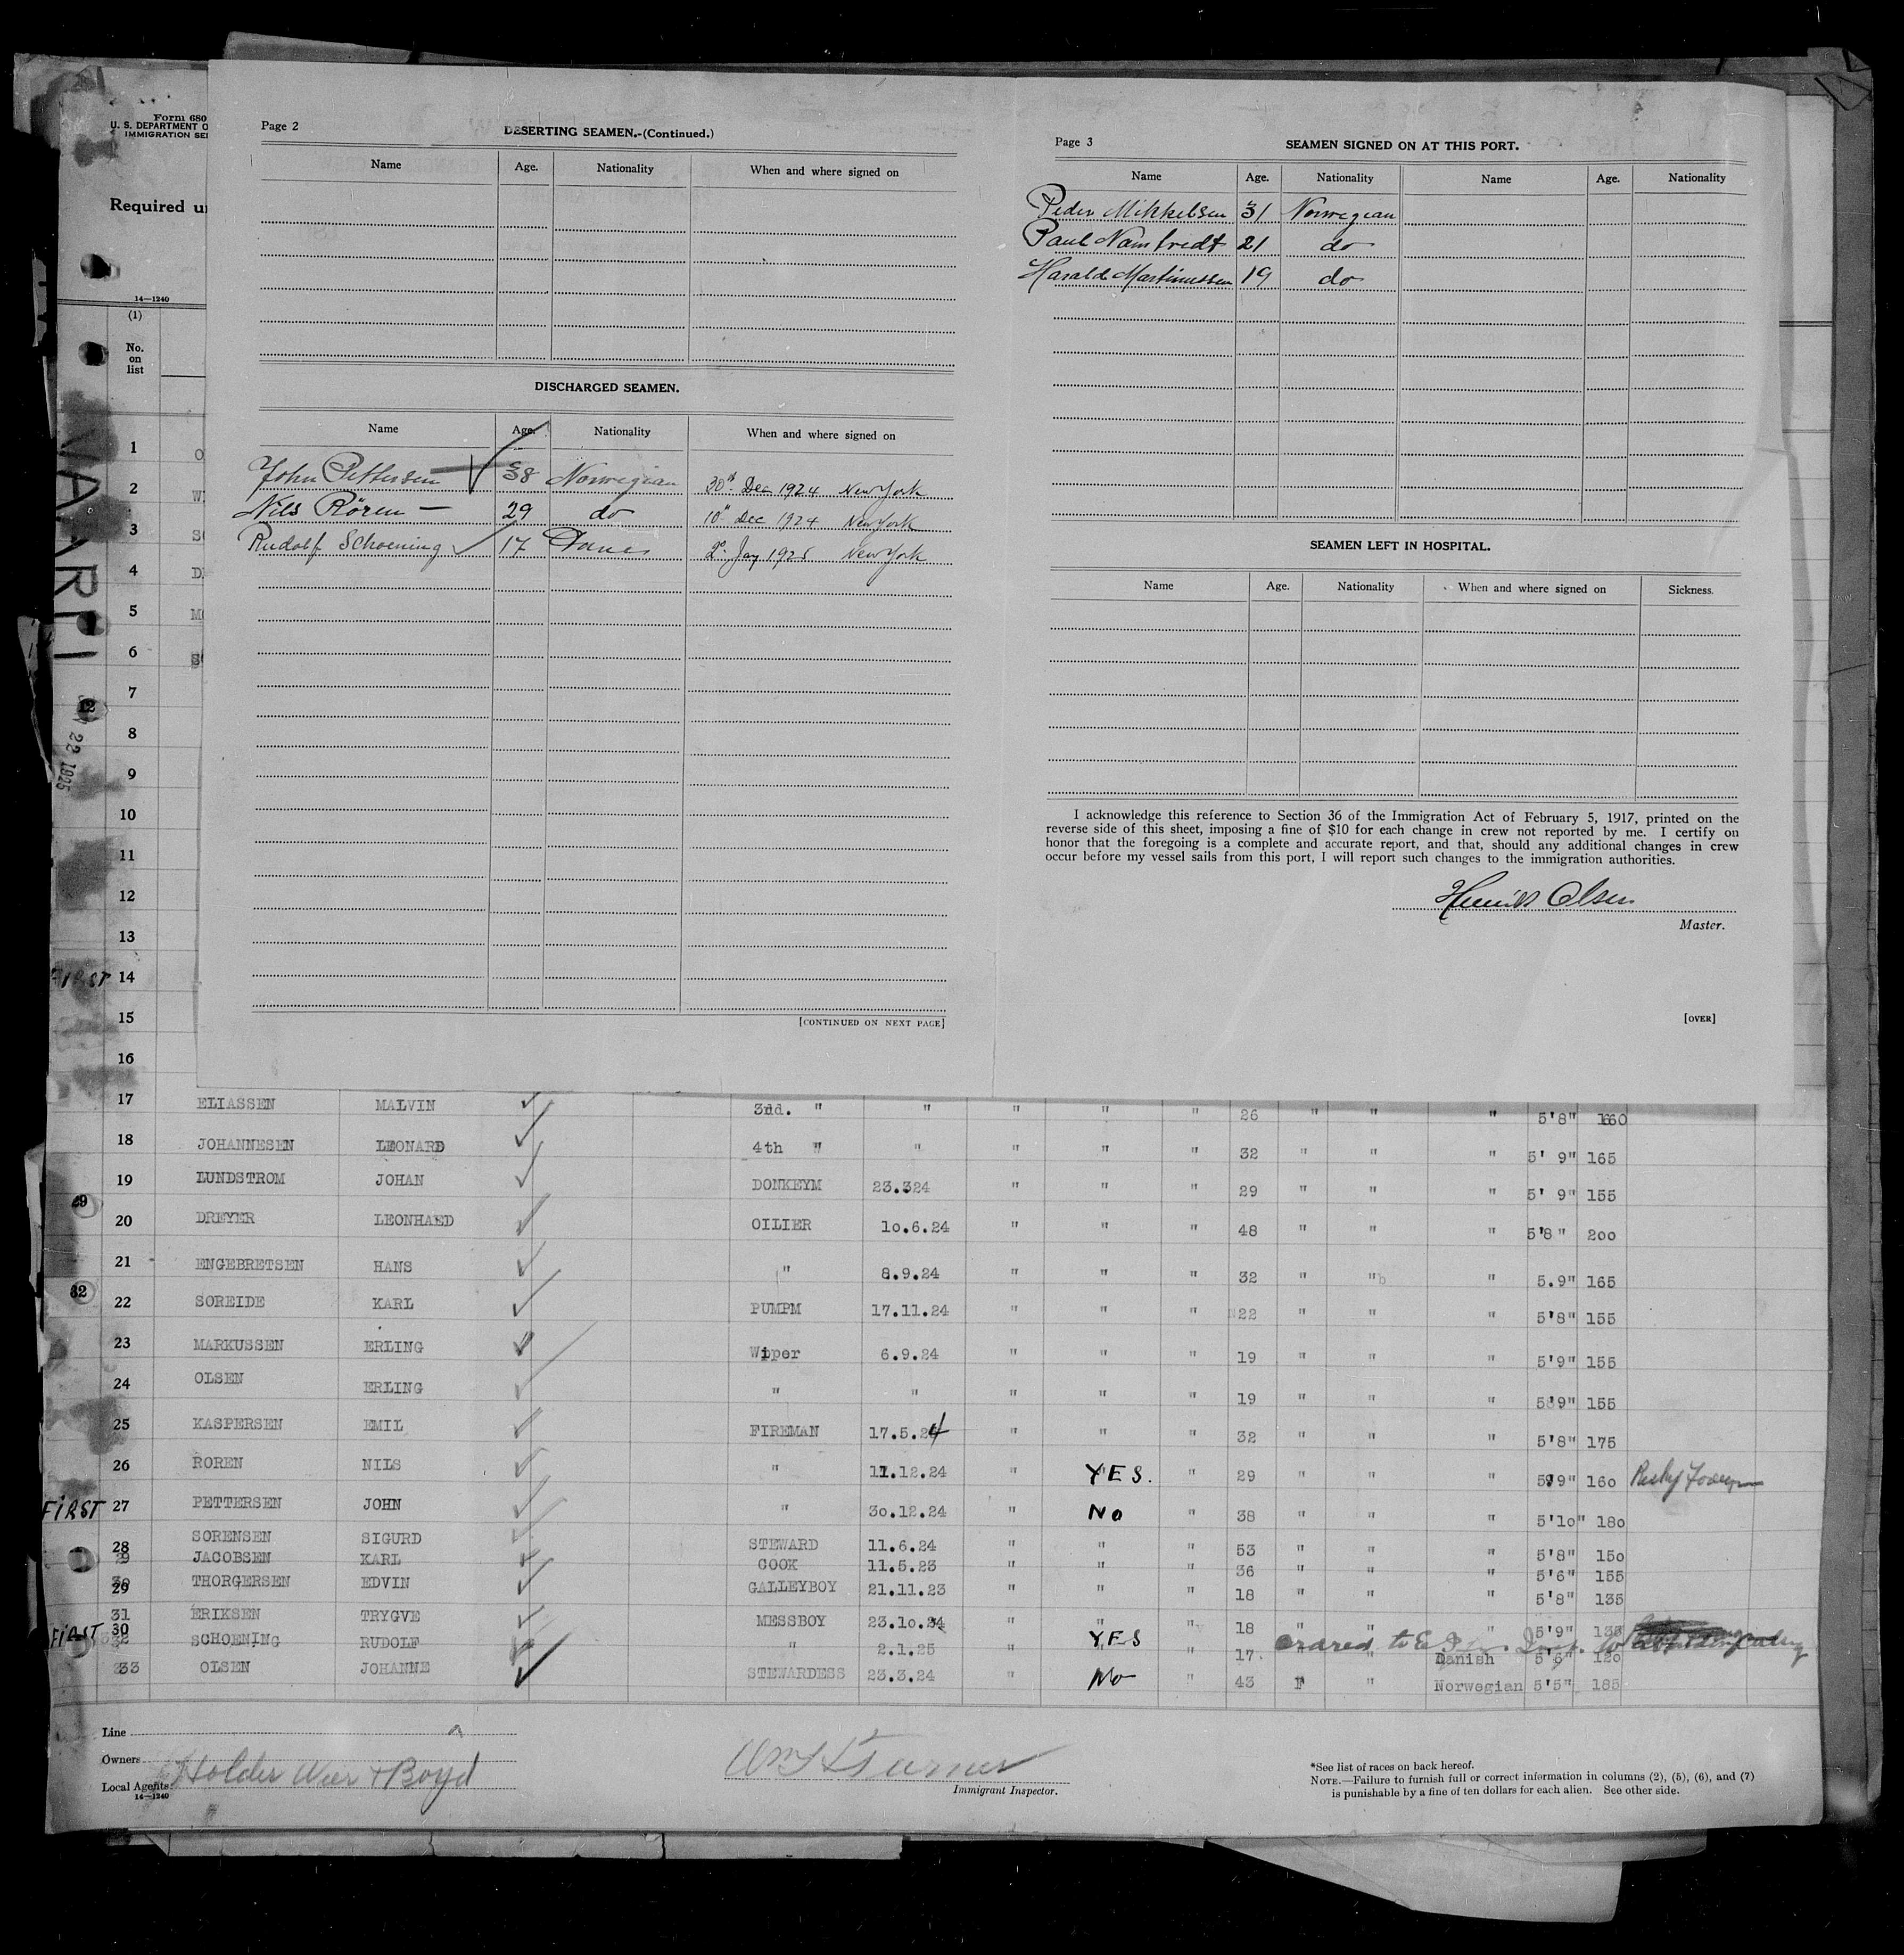 Form 680
U. S. DEPARTMENT O
IMMIGRATION SE
Required u
14—1240
(1)
No.
on
list
Page 2
DESERTING SEAMEN.-(Continued.)
Name Age. Nationality When and where signed on
DISCHARGED SEAMEN.
Name Age. Nationality When and where signed on
John Pettersen 38 Norwegian 30th Dec 1924 New York
Nils Rören — 29 do 10" Dec 1924 New York
Rudolf Schoening 17 Dane 2" Jay 1925 New York
[CONTINUED ON NEXT PAGE]
Page 3
SEAMEN SIGNED ON AT THIS PORT.
Name Age. Nationality Name Age. Nationality
Peder Mikkelsen 31 Norwegian
Paul 21 do
Harald Martinussen 19 do
SEAMEN LEFT IN HOSPITAL.
Name Age. Nationality When and where signed on Sickness.
I acknowledge this reference to Section 36 of the Immigration Act of February 5, 1917, printed on the
reverse side of this sheet, imposing a fine of $10 for each change in crew not reported by me. I certify on
honor that the foregoing is a complete and accurate report, and that, should any additional changes in crew
occur before my vessel sails from this port, I will report such changes to the immigration authorities.
Henrik Olsen
Master.
[OVER]
1 O
2 W
3 S
4 D
5 M
6 S
7
12
8
22 1925
9
10
11
12
13
FIRST 14
15
16
17 ELIASSEN MALVIN 3rd. " " " " " 26 " " " 5'8" 160
18 JOHANNESEN LEONARD 4th " " " " " 32 " " " 5' 9" 165
19 LUNDSTROM JOHAN DONKEYM 23.324 " " " 29 " " " 5' 9" 155
29
20 DREYER LEONHAED OILIER 10.6.24 " " " 48 " " " 5'8" 200
21 ENGEBRETSEN HANS " 8.9.24 " " " 32 " " " 5.9" 165
32
22 SOREIDE KARL PUMPM 17.11.24 " " " 22 " " " 5'8" 155
23 MARKUSSEN ERLING Wipper 6.9.24 " " " 19 " " " 5'9" 155
24 OLSEN ERLING " " " " " 19 " " " 5'9" 155
25 KASPERSEN EMIL FIREMAN 17.5.24 " " " 32 " " " 5'8" 175
26 ROREN NILS " 11.12.24 " YES. " 29 " " " 5'9" 160
FIRST 27 PETTERSEN JOHN " 30.12.24 " No " 38 " " " 5'10" 180
28 SORENSEN SIGURD STEWARD 11.6.24 " " " 53 " " " 5'8" 150
29 JACOBSEN KARL COOK 11.5.23 " " " 36 " " " 5'6" 155
30 29 THORGERSEN EDVIN GALLEYBOY 21.11.23 " " " 18 " " " 5'8" 135
31 ERIKSEN TRYGVE MESSBOY 23.10.24 " " " 18 " " " 5'9" 135
FIRST 30 32 SCHOENING RUDOLF " 2.1.25 " YES " 17. " " Danish 5'6" 120
33 OLSEN JOHANNE STEWARDESS 23.3.24 " No " 43 F " Norwegian 5'5" 185
Line
Owners
Local Agents. Holder Weir & Boyd
14—1240
Wm Turner
Immigrant Inspector.
*See list of races on back hereof.
NOTE.—Failure to furnish full or correct information in columns (2), (5), (6), and (7)
is punishable by a fine of ten dollars for each alien. See other side.